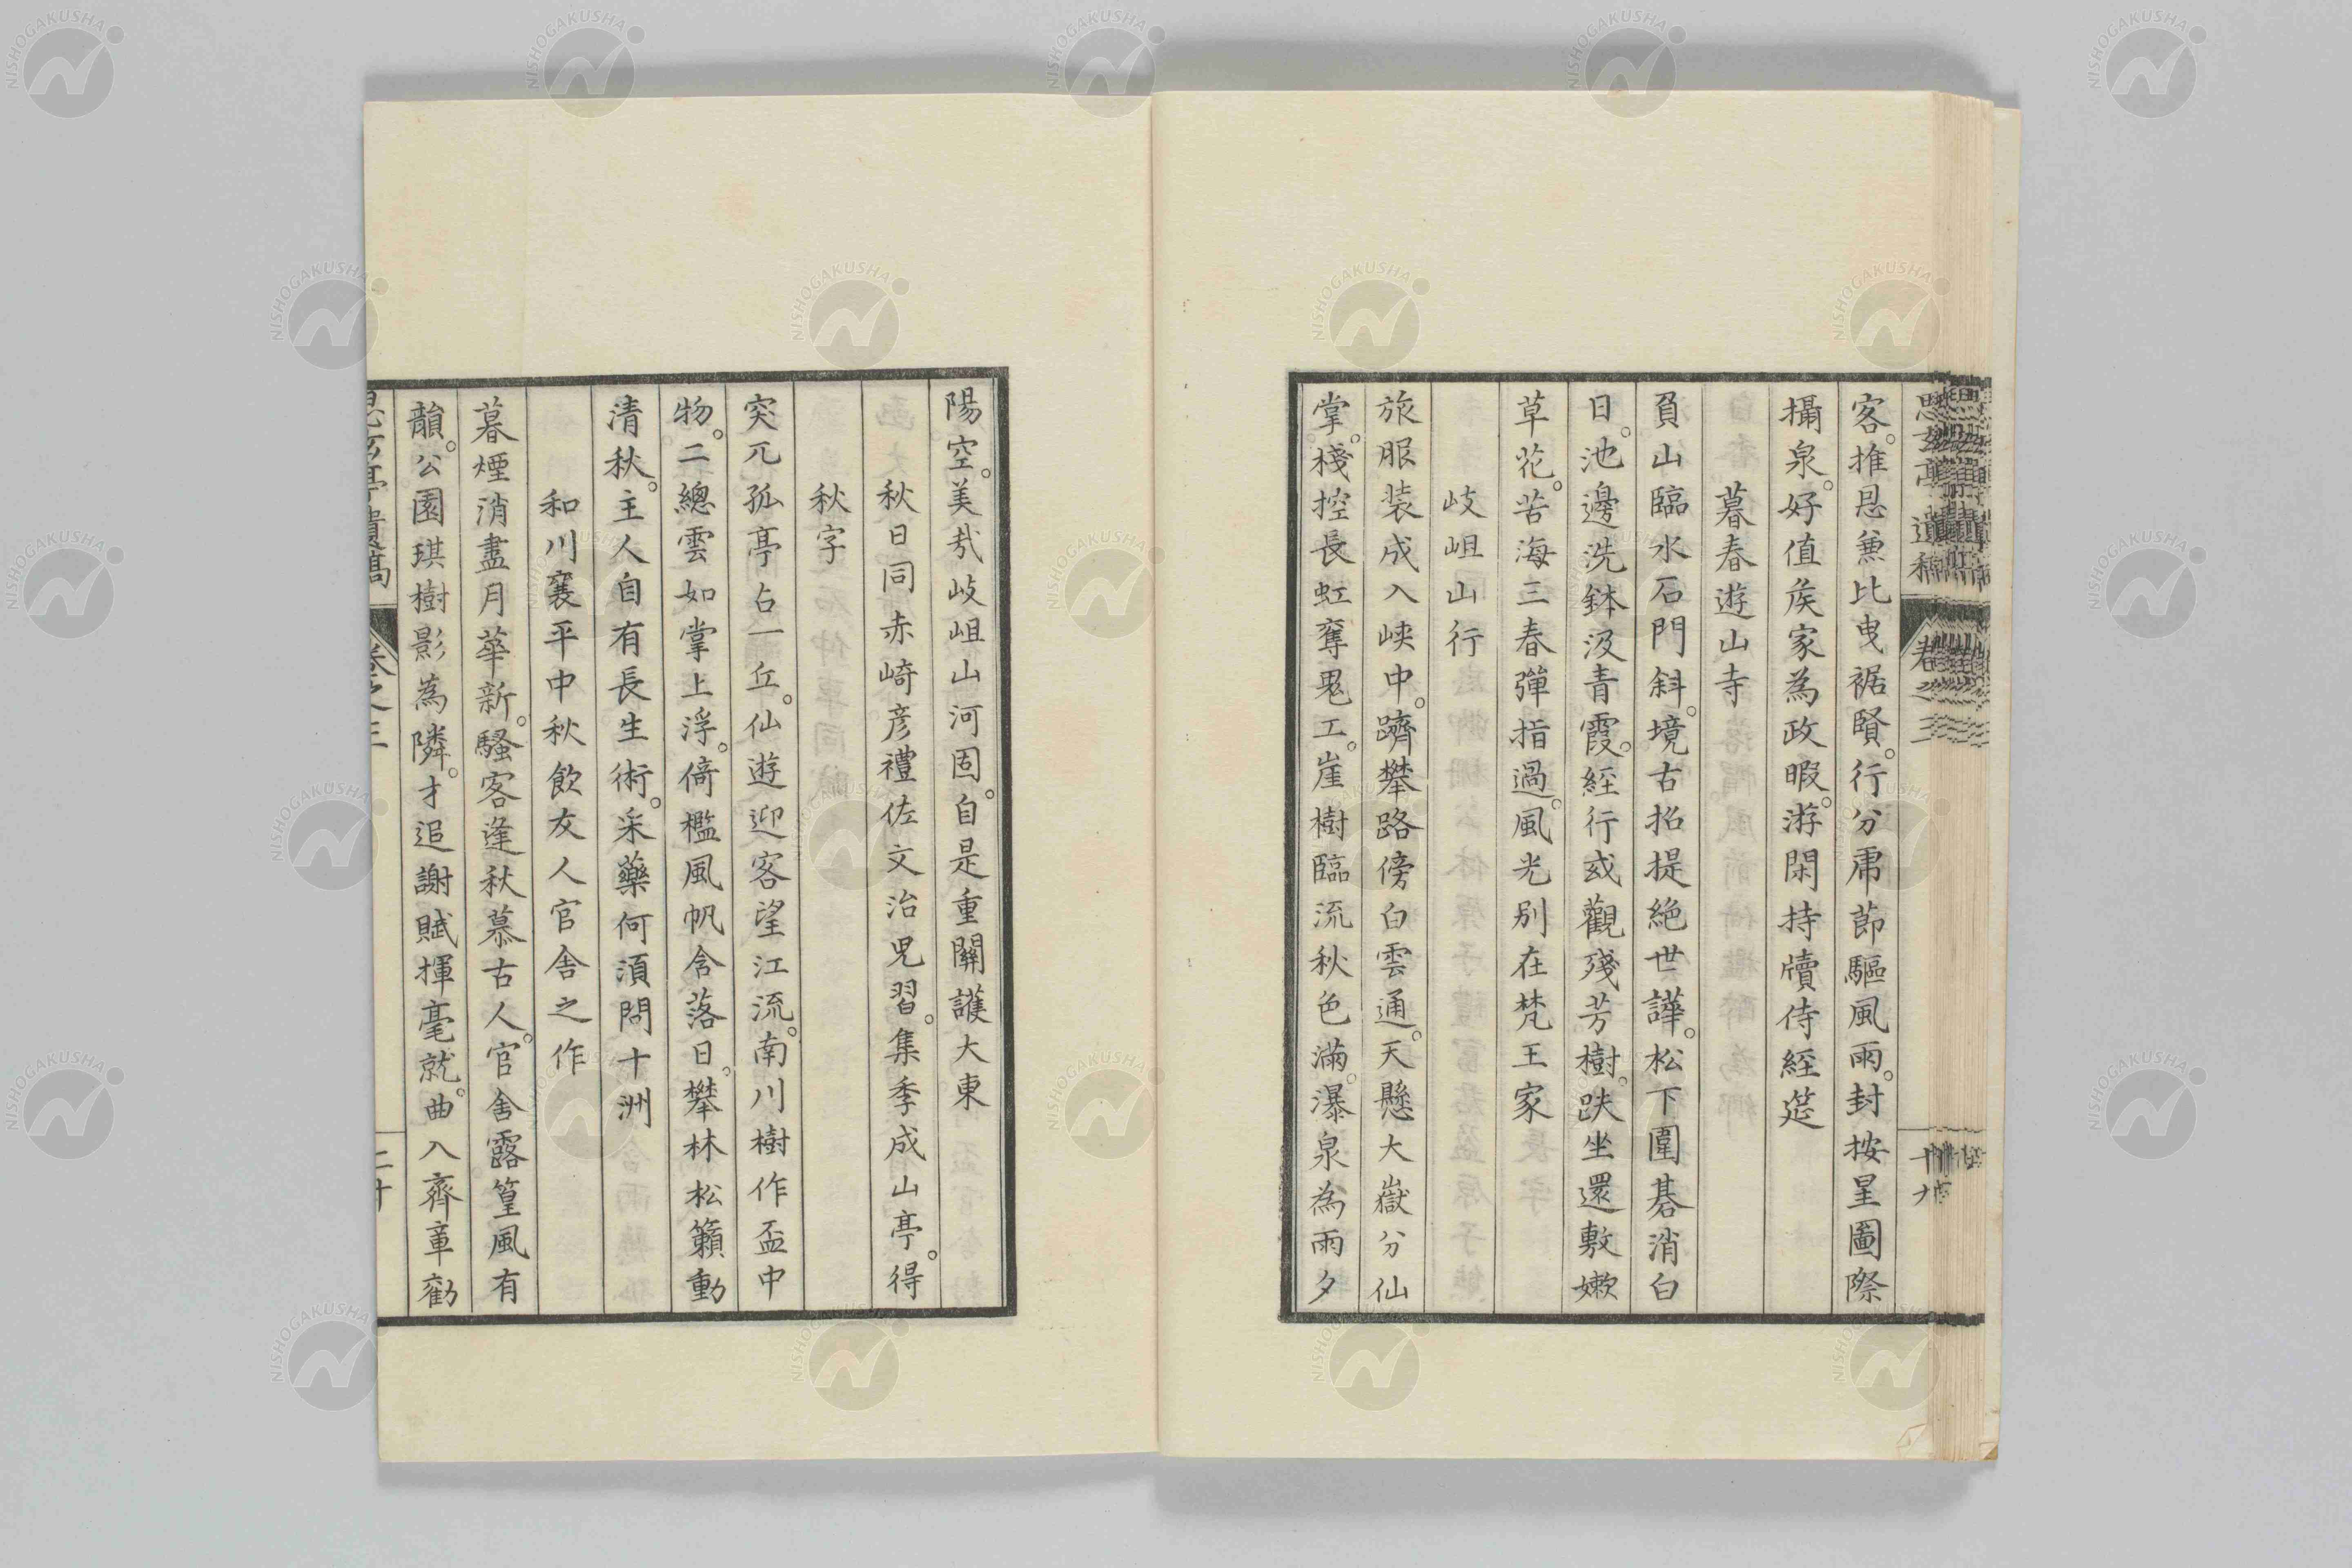 客。推恩兼比曳裾賢。行分虎節驅風雨。封按星圖際
攝泉。好值侯家為政暇。游閑持牘侍經筵
暮春遊山寺
負山臨水石門斜。境古招提絶世譁。松下圍碁消白
日。池邊洗鉢汲青霞。經行或觀殘芳樹。趺坐還敷嫩
草花。苦海三春彈指過。風光別在梵王家
岐岨山行
旅服装成入峽中。躋攀路傍白雲通。天懸大嶽分仙
掌。棧控長虹奪鬼工。崖樹臨流秋色滿。瀑泉為雨夕
陽空。美哉岐岨山河固。自是重關護大東
秋日同赤崎彦禮佐文治兒習。集季成山亭。得
秋字
突兀孤亭占一丘。仙遊迎客望江流。南川樹作盃中
物。二總雲如掌上浮。倚檻風帆含落日。攀林松籟動
清秋。主人自有長生術。采藥何須問十洲
和川襄平中秋飲友人官舎之作
暮煙消盡月華新。騷客逢秋慕古人。官舎露篁風有
韻。公園琪樹影為隣。才追謝賦揮毫就。曲入齊章勸
思玄亭遺稿 卷之三 二十